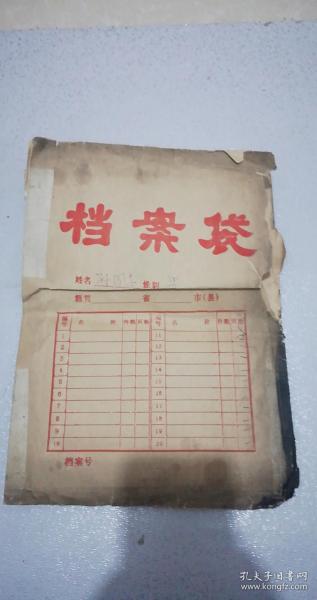 档案袋
姓名 性别
籍贯 省 市(县)
编号 名称 件数 页数 编号 名称 件数 页数
1 11
2 12
3 13
4 14
5 15
6 16
7 17
8 18
9 19
10 20
档案号
孔夫子旧书网